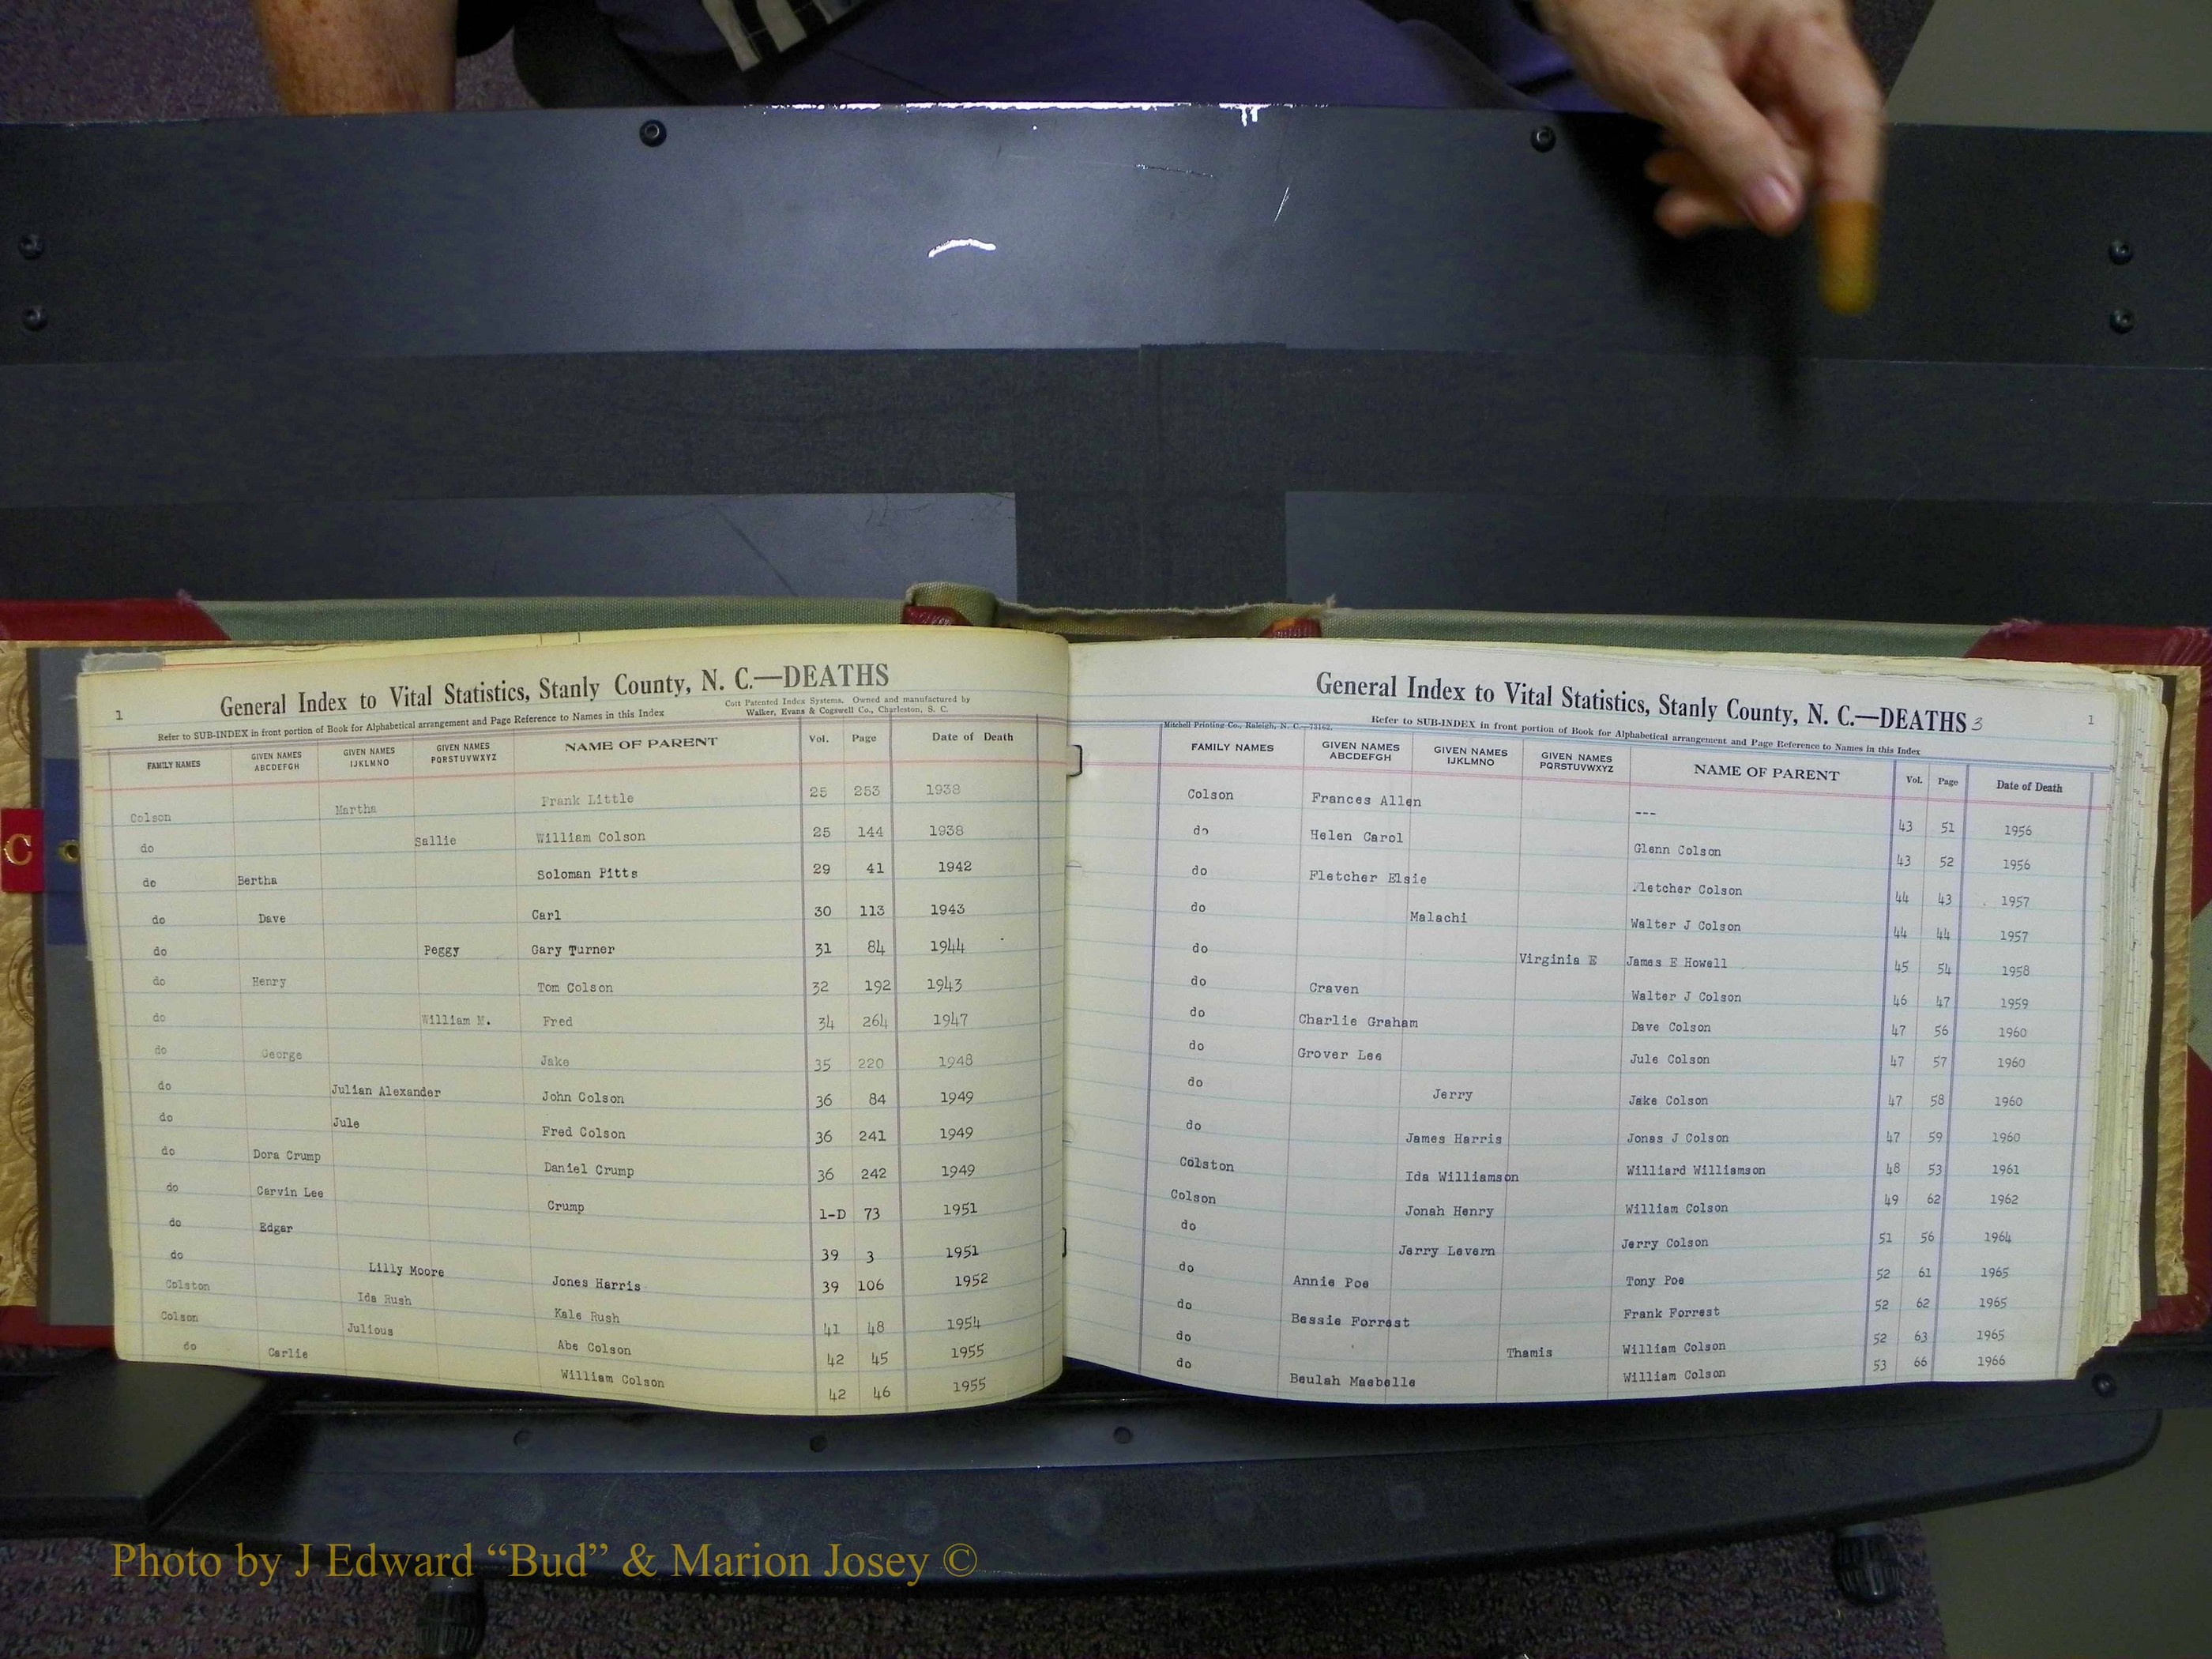 1
General Index to Vital Statistics, Stanly County, N. C.—DEATHS
Refer to SUB-INDEX in front portion of Book for Alphabetical arrangement and Page Reference to Names in this Index
Cott Patented Index Systems. Owned and manufactured by
Walker, Evans & Cogswell Co., Charleston, S. C.
FAMILY NAMES GIVEN NAMES ABCDEFGH GIVEN NAMES IJKLMNO GIVEN NAMES PQRSTUVWXYZ NAME OF PARENT Vol. Page Date of Death
Colson Martha Frank Little 25 253 1938
do Sallie William Colson 25 144 1938
do Bertha Soloman Pitts 29 41 1942
do Dave Carl 30 113 1943
do Peggy Gary Turner 31 84 1944
do Henry Tom Colson 32 192 1943
do William M. Fred 34 264 1947
do George Jake 35 220 1948
do Julian Alexander John Colson 36 84 1949
do Jule Fred Colson 36 241 1949
do Dora Crump Daniel Crump 36 242 1949
do Carvin Lee Crump 1-D 73 1951
do Edgar 39 3 1951
do Lilly Moore Jones Harris 39 106 1952
Colston Ida Rush Kale Rush 41 48 1954
Colson Julious Abe Colson 42 45 1955
do Carlie William Colson 42 46 1955
C
General Index to Vital Statistics, Stanly County, N. C.—DEATHS 3
1
Mitchell Printing Co., Raleigh, N. C.—73162.
Refer to SUB-INDEX in front portion of Book for Alphabetical arrangement and Page Reference to Names in this Index
FAMILY NAMES GIVEN NAMES ABCDEFGH GIVEN NAMES IJKLMNO GIVEN NAMES PQRSTUVWXYZ NAME OF PARENT Vol. Page Date of Death
Colson Frances Allen --- 43 51 1956
do Helen Carol Glenn Colson 43 52 1956
do Fletcher Elsie Fletcher Colson 44 43 1957
do Malachi Walter J Colson 44 44 1957
do Virginia E James E Howell 45 54 1958
do Craven Walter J Colson 46 47 1959
do Charlie Graham Dave Colson 47 56 1960
do Grover Lee Jule Colson 47 57 1960
do Jerry Jake Colson 47 58 1960
do James Harris Jonas J Colson 47 59 1960
Colston Ida Williamson Williard Williamson 48 53 1961
Colson Jonah Henry William Colson 49 62 1962
do Jerry Levern Jerry Colson 51 56 1964
do Annie Poe Tony Poe 52 61 1965
do Bessie Forrest Frank Forrest 52 62 1965
do Thamis William Colson 52 63 1965
do Beulah Maebelle William Colson 53 66 1966
Photo by J Edward “Bud” & Marion Josey ©